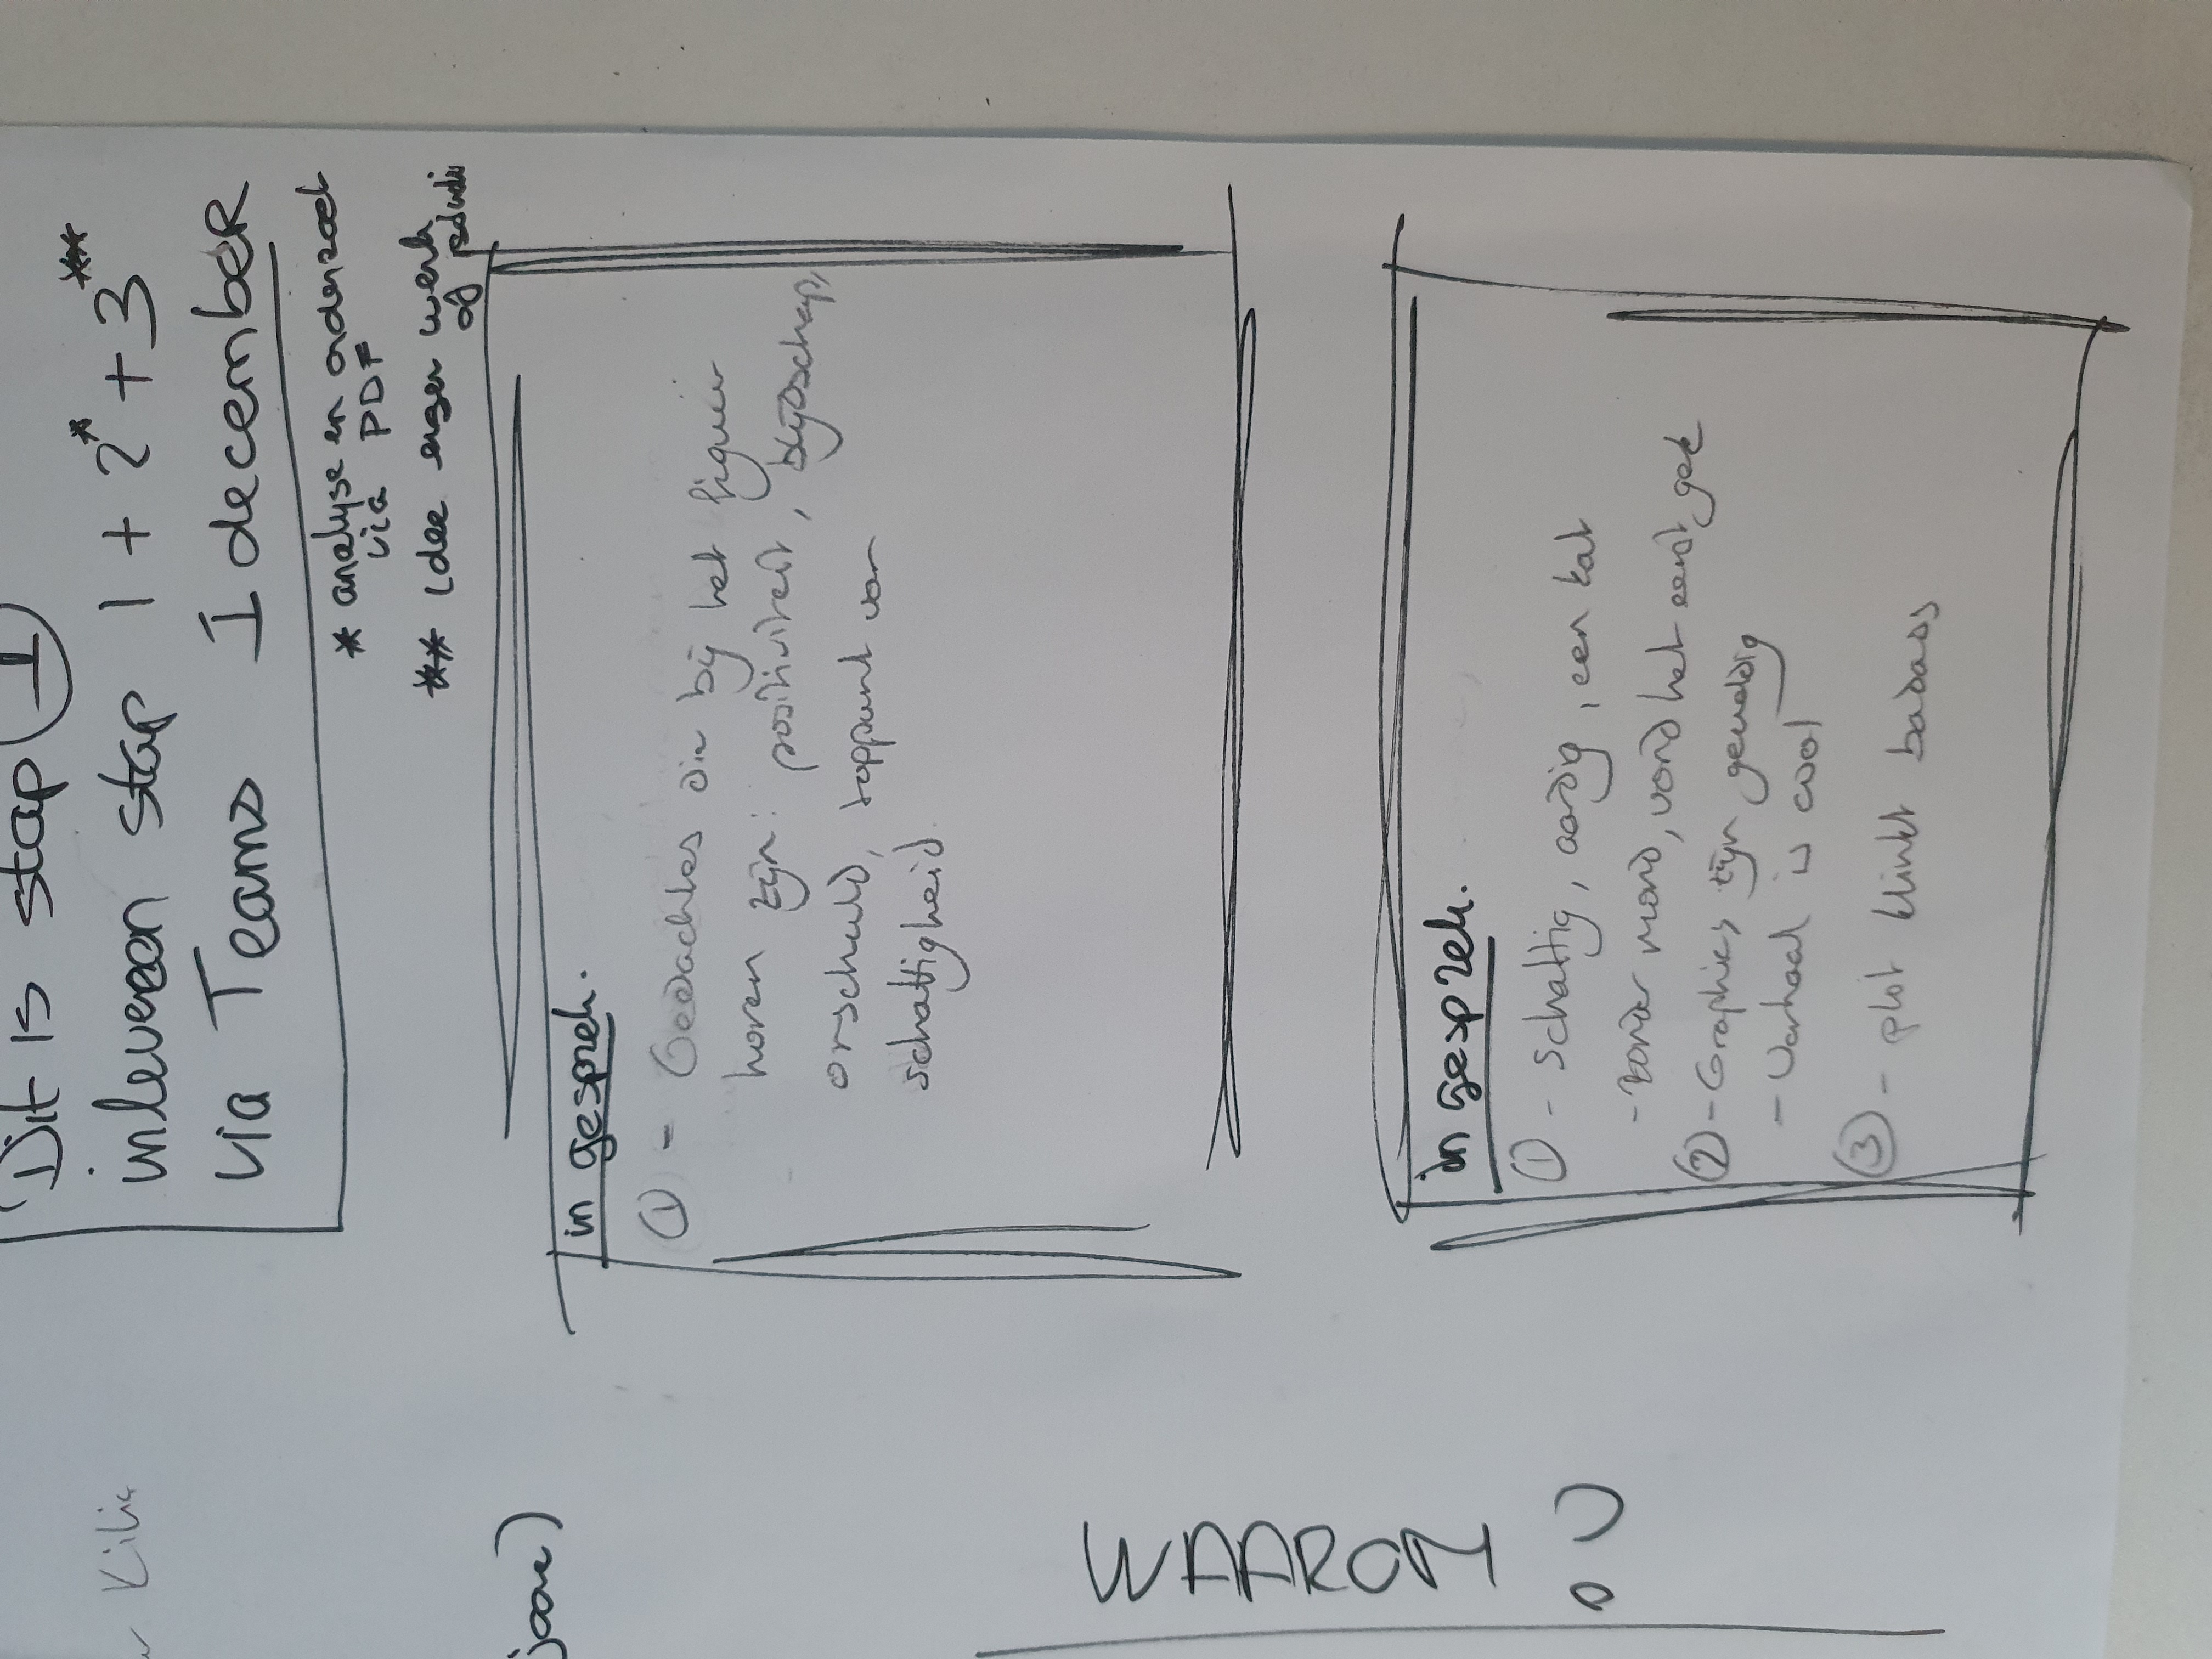 Dit is stap 1
inleveren stap 1 + 2* + 3**
via Teams 1 december
* analyse en onderzoek
via PDF
** idee eigen werk
of
in gesprek.
① - Gedachtes die bij het figuur
horen zijn: positiviteit, blijdschap,
onschuld, toppunt van
schattigheid.
in gesprek.
① - schattig, aardig, een kat
- zonder mond, vond het eerst gek
② - Graphics zijn geweldig
- Verhaal is cool
③ - plot klinkt badass
jaar)
WAAROM?